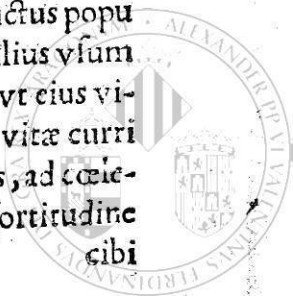 ctus popu
lius vſum
vt eius vi-
vitæ curri
s, ad cœle-
ortitudine
cibi
ALEXANDER PP VI VALENTINVS FERDINANDVS